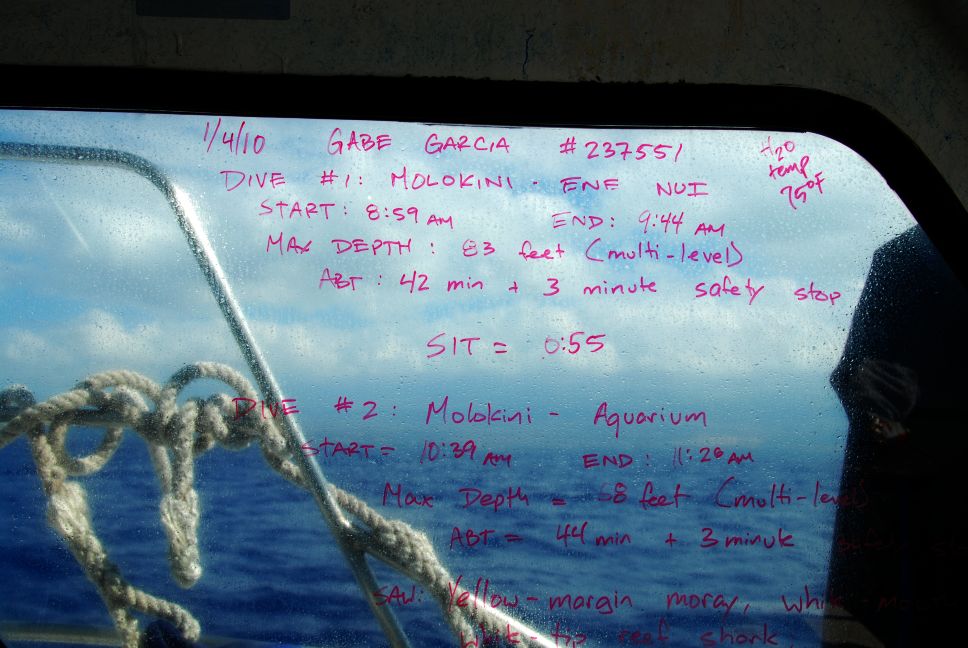 1/4/10 GABE GARCIA #237551 H2O temp 75°F
DIVE #1: MOLOKINI - ENE NUI
START: 8:59 AM END: 9:44 AM
MAX DEPTH: 83 feet (multi-level)
ABT: 42 min + 3 minute safety stop
SIT = 0:55
DIVE #2: Molokini - Aquarium
START = 10:39 AM END: 11:26 AM
Max Depth = 58 feet (multi-level)
ABT = 44 min + 3 minute safety
SAW: Yellow-margin moray,
White-tip reef shark